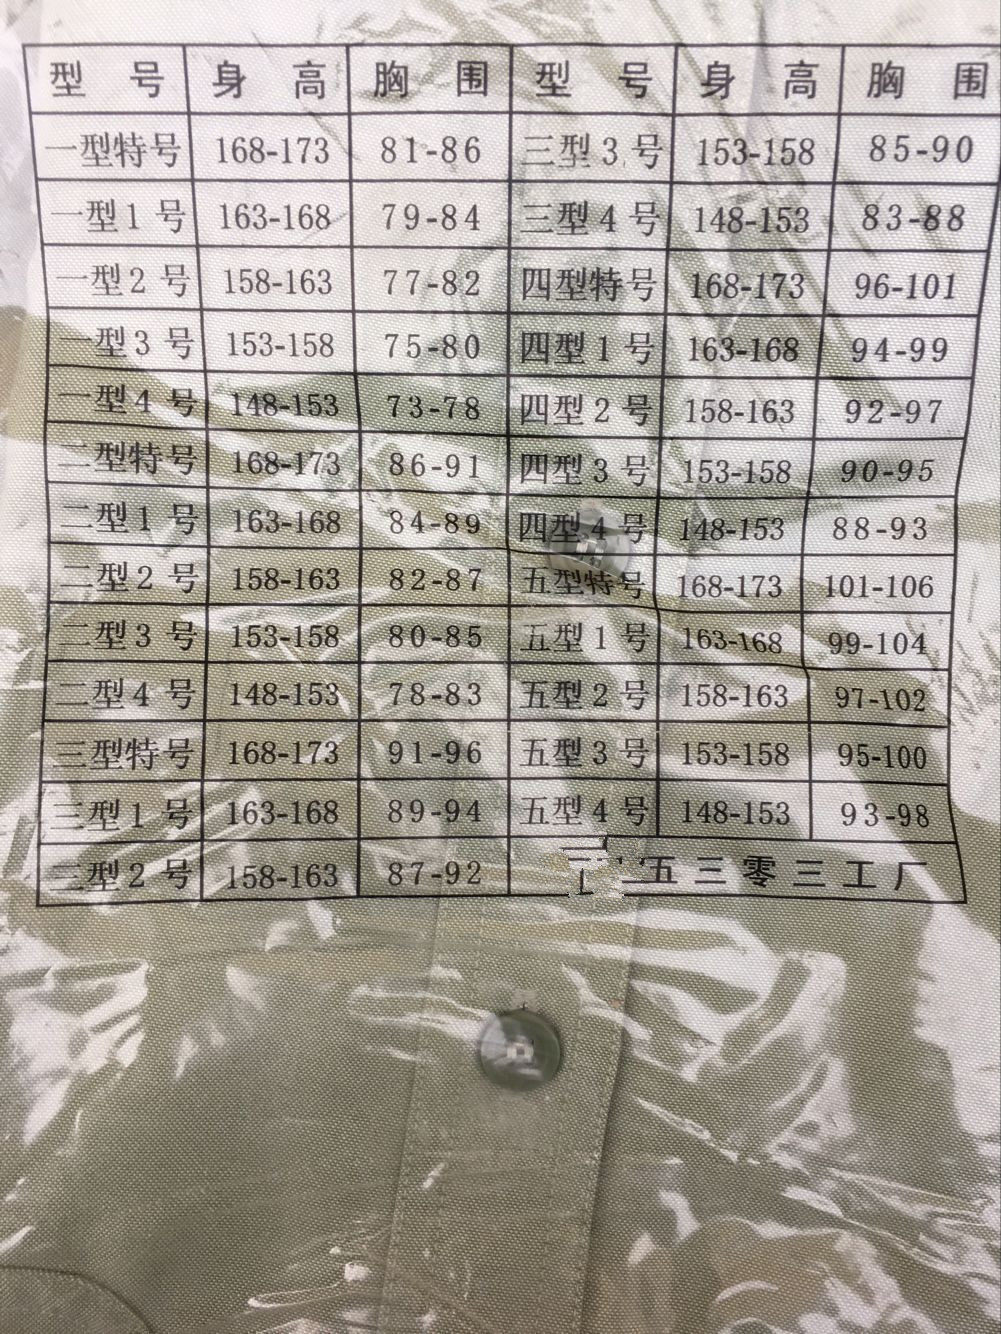 型 号 身 高 胸 围 型 号 身 高 胸 围
一型特号 168-173 81-86 三型3号 153-158 85-90
一型1号 163-168 79-84 三型4号 148-153 83-88
一型2号 158-163 77-82 四型特号 168-173 96-101
一型3号 153-158 75-80 四型1号 163-168 94-99
一型4号 148-153 73-78 四型2号 158-163 92-97
二型特号 168-173 86-91 四型3号 153-158 90-95
二型1号 163-168 84-89 四型4号 148-153 88-93
二型2号 158-163 82-87 五型特号 168-173 101-106
二型3号 153-158 80-85 五型1号 163-168 99-104
二型4号 148-153 78-83 五型2号 158-163 97-102
三型特号 168-173 91-96 五型3号 153-158 95-100
三型1号 163-168 89-94 五型4号 148-153 93-98
三型2号 158-163 87-92 五三零三工厂